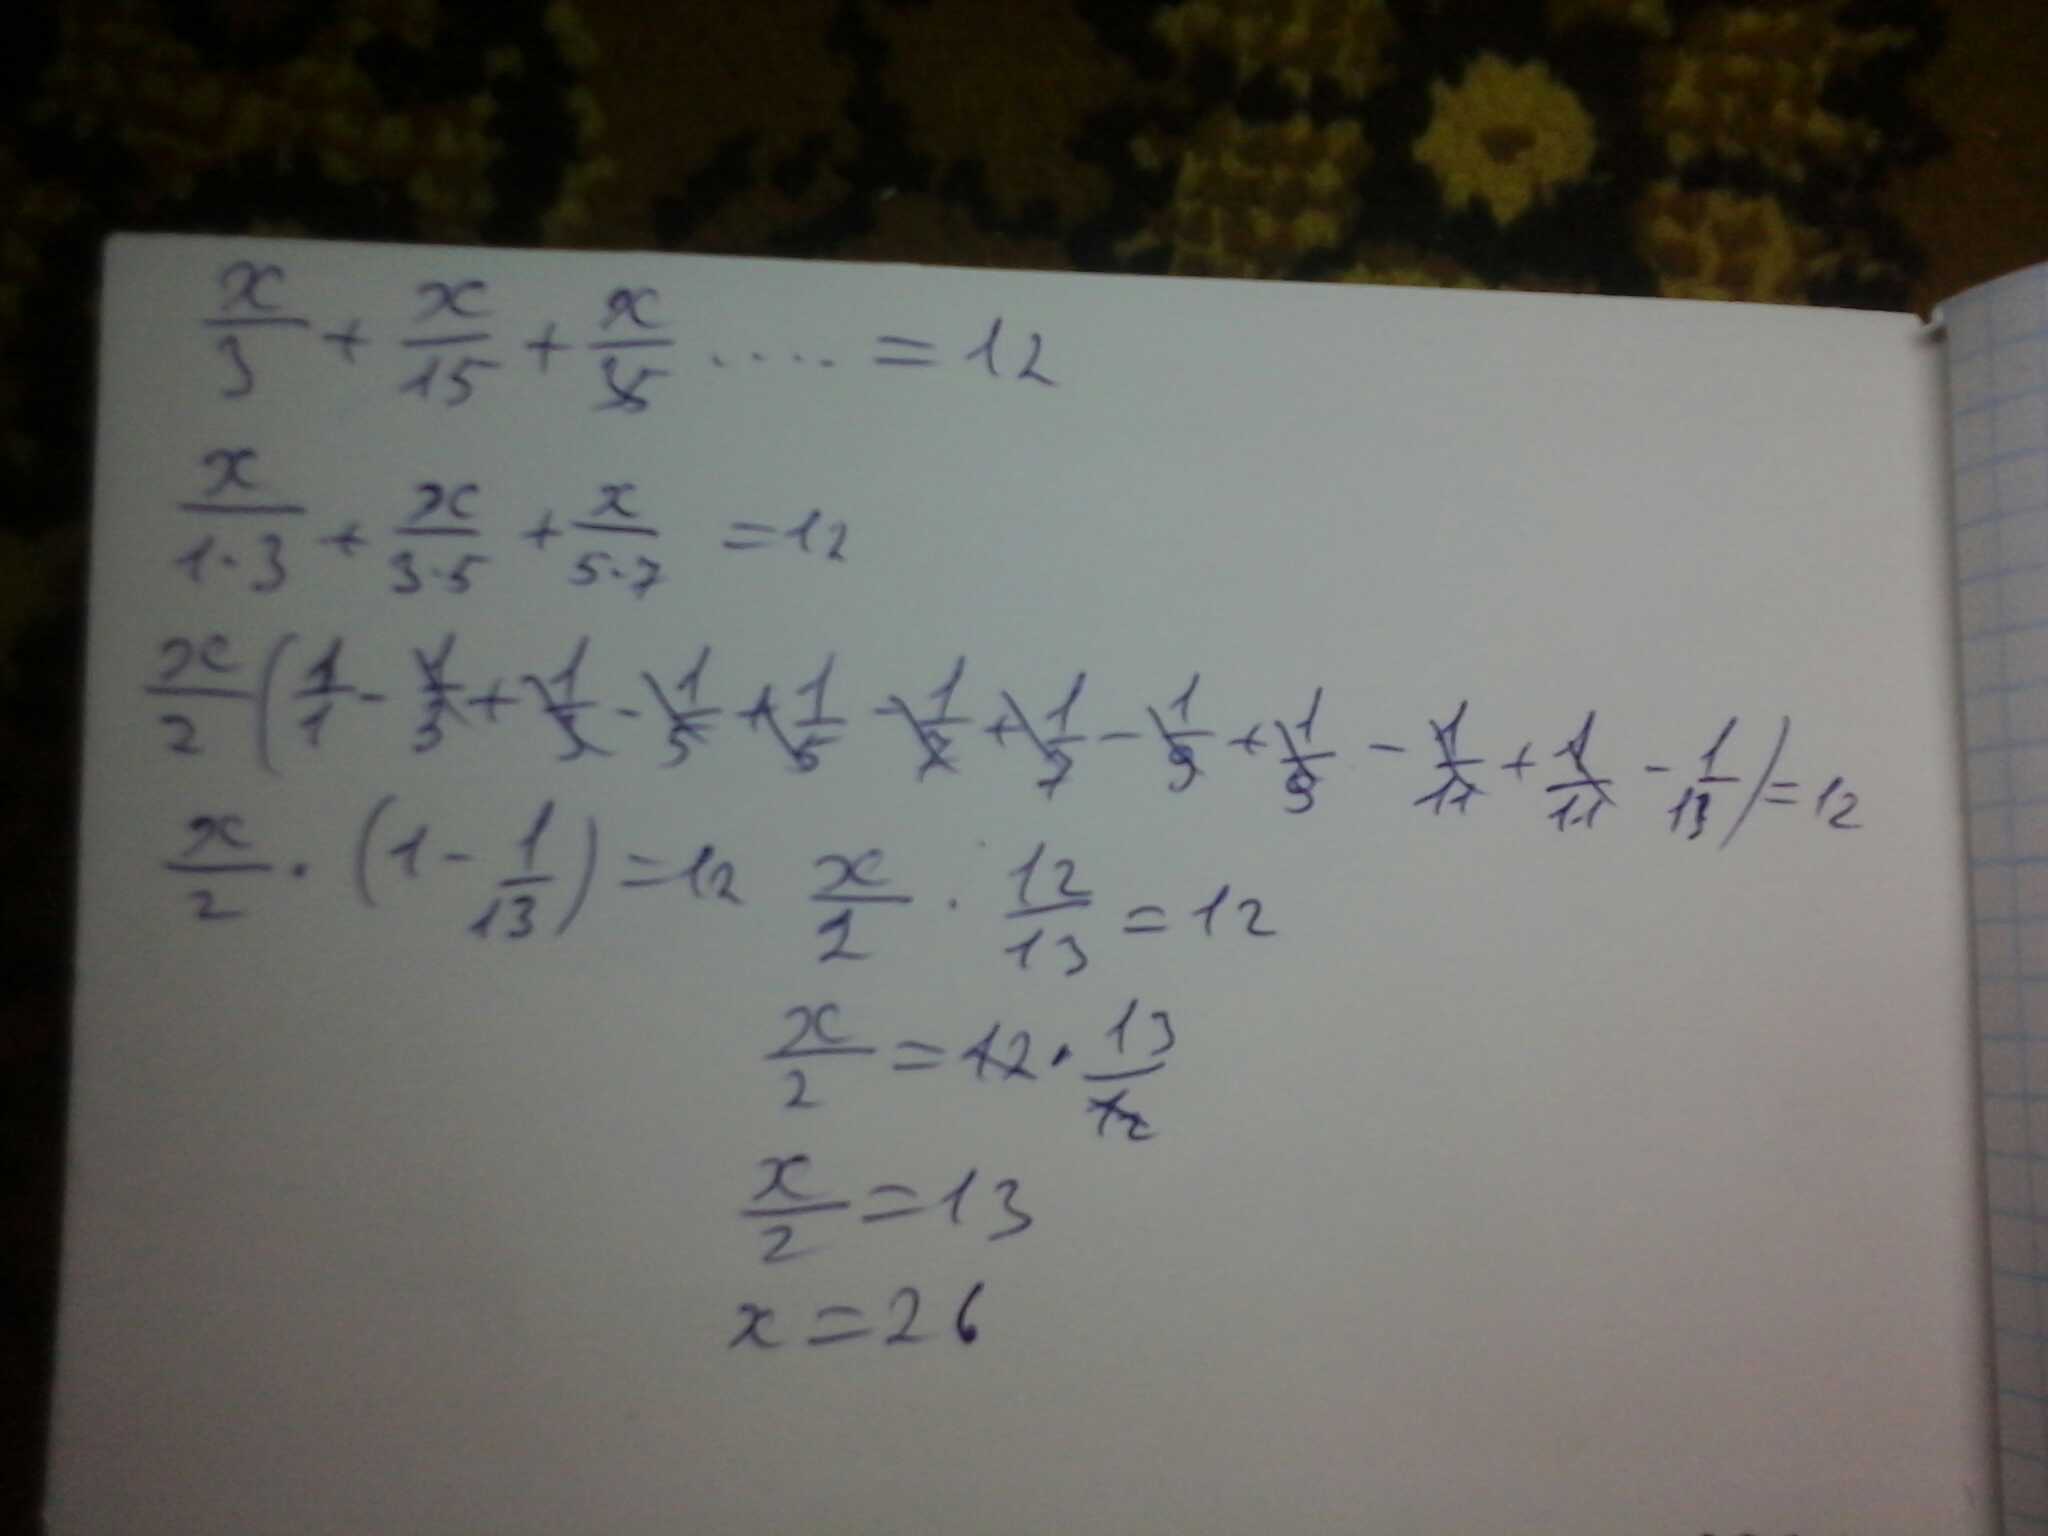 x/3 + x/15 + x/35 ..... = 12
x/1·3 + x/3·5 + x/5·7 = 12
x/2 (1/1 - 1/3 + 1/3 - 1/5 + 1/5 - 1/7 + 1/7 - 1/9 + 1/9 - 1/11 + 1/11 - 1/13) = 12
x/2 · (1 - 1/13) = 12 x/2 · 12/13 = 12
x/2 = 12 · 13/12
x/2 = 13
x = 26